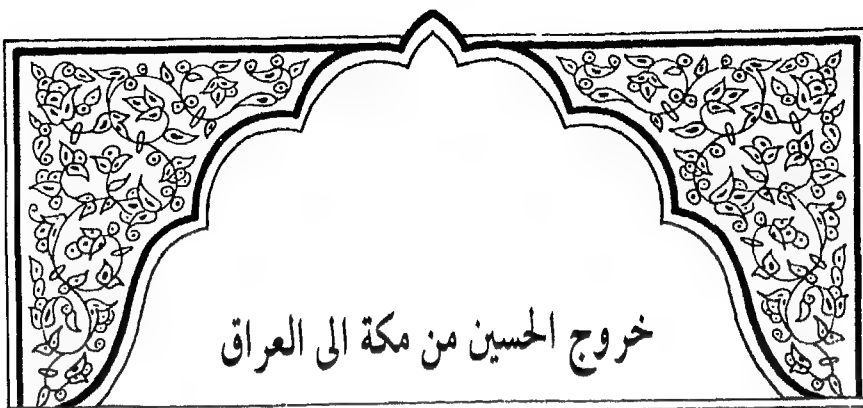 خروج الحسين من مكة الى العراق